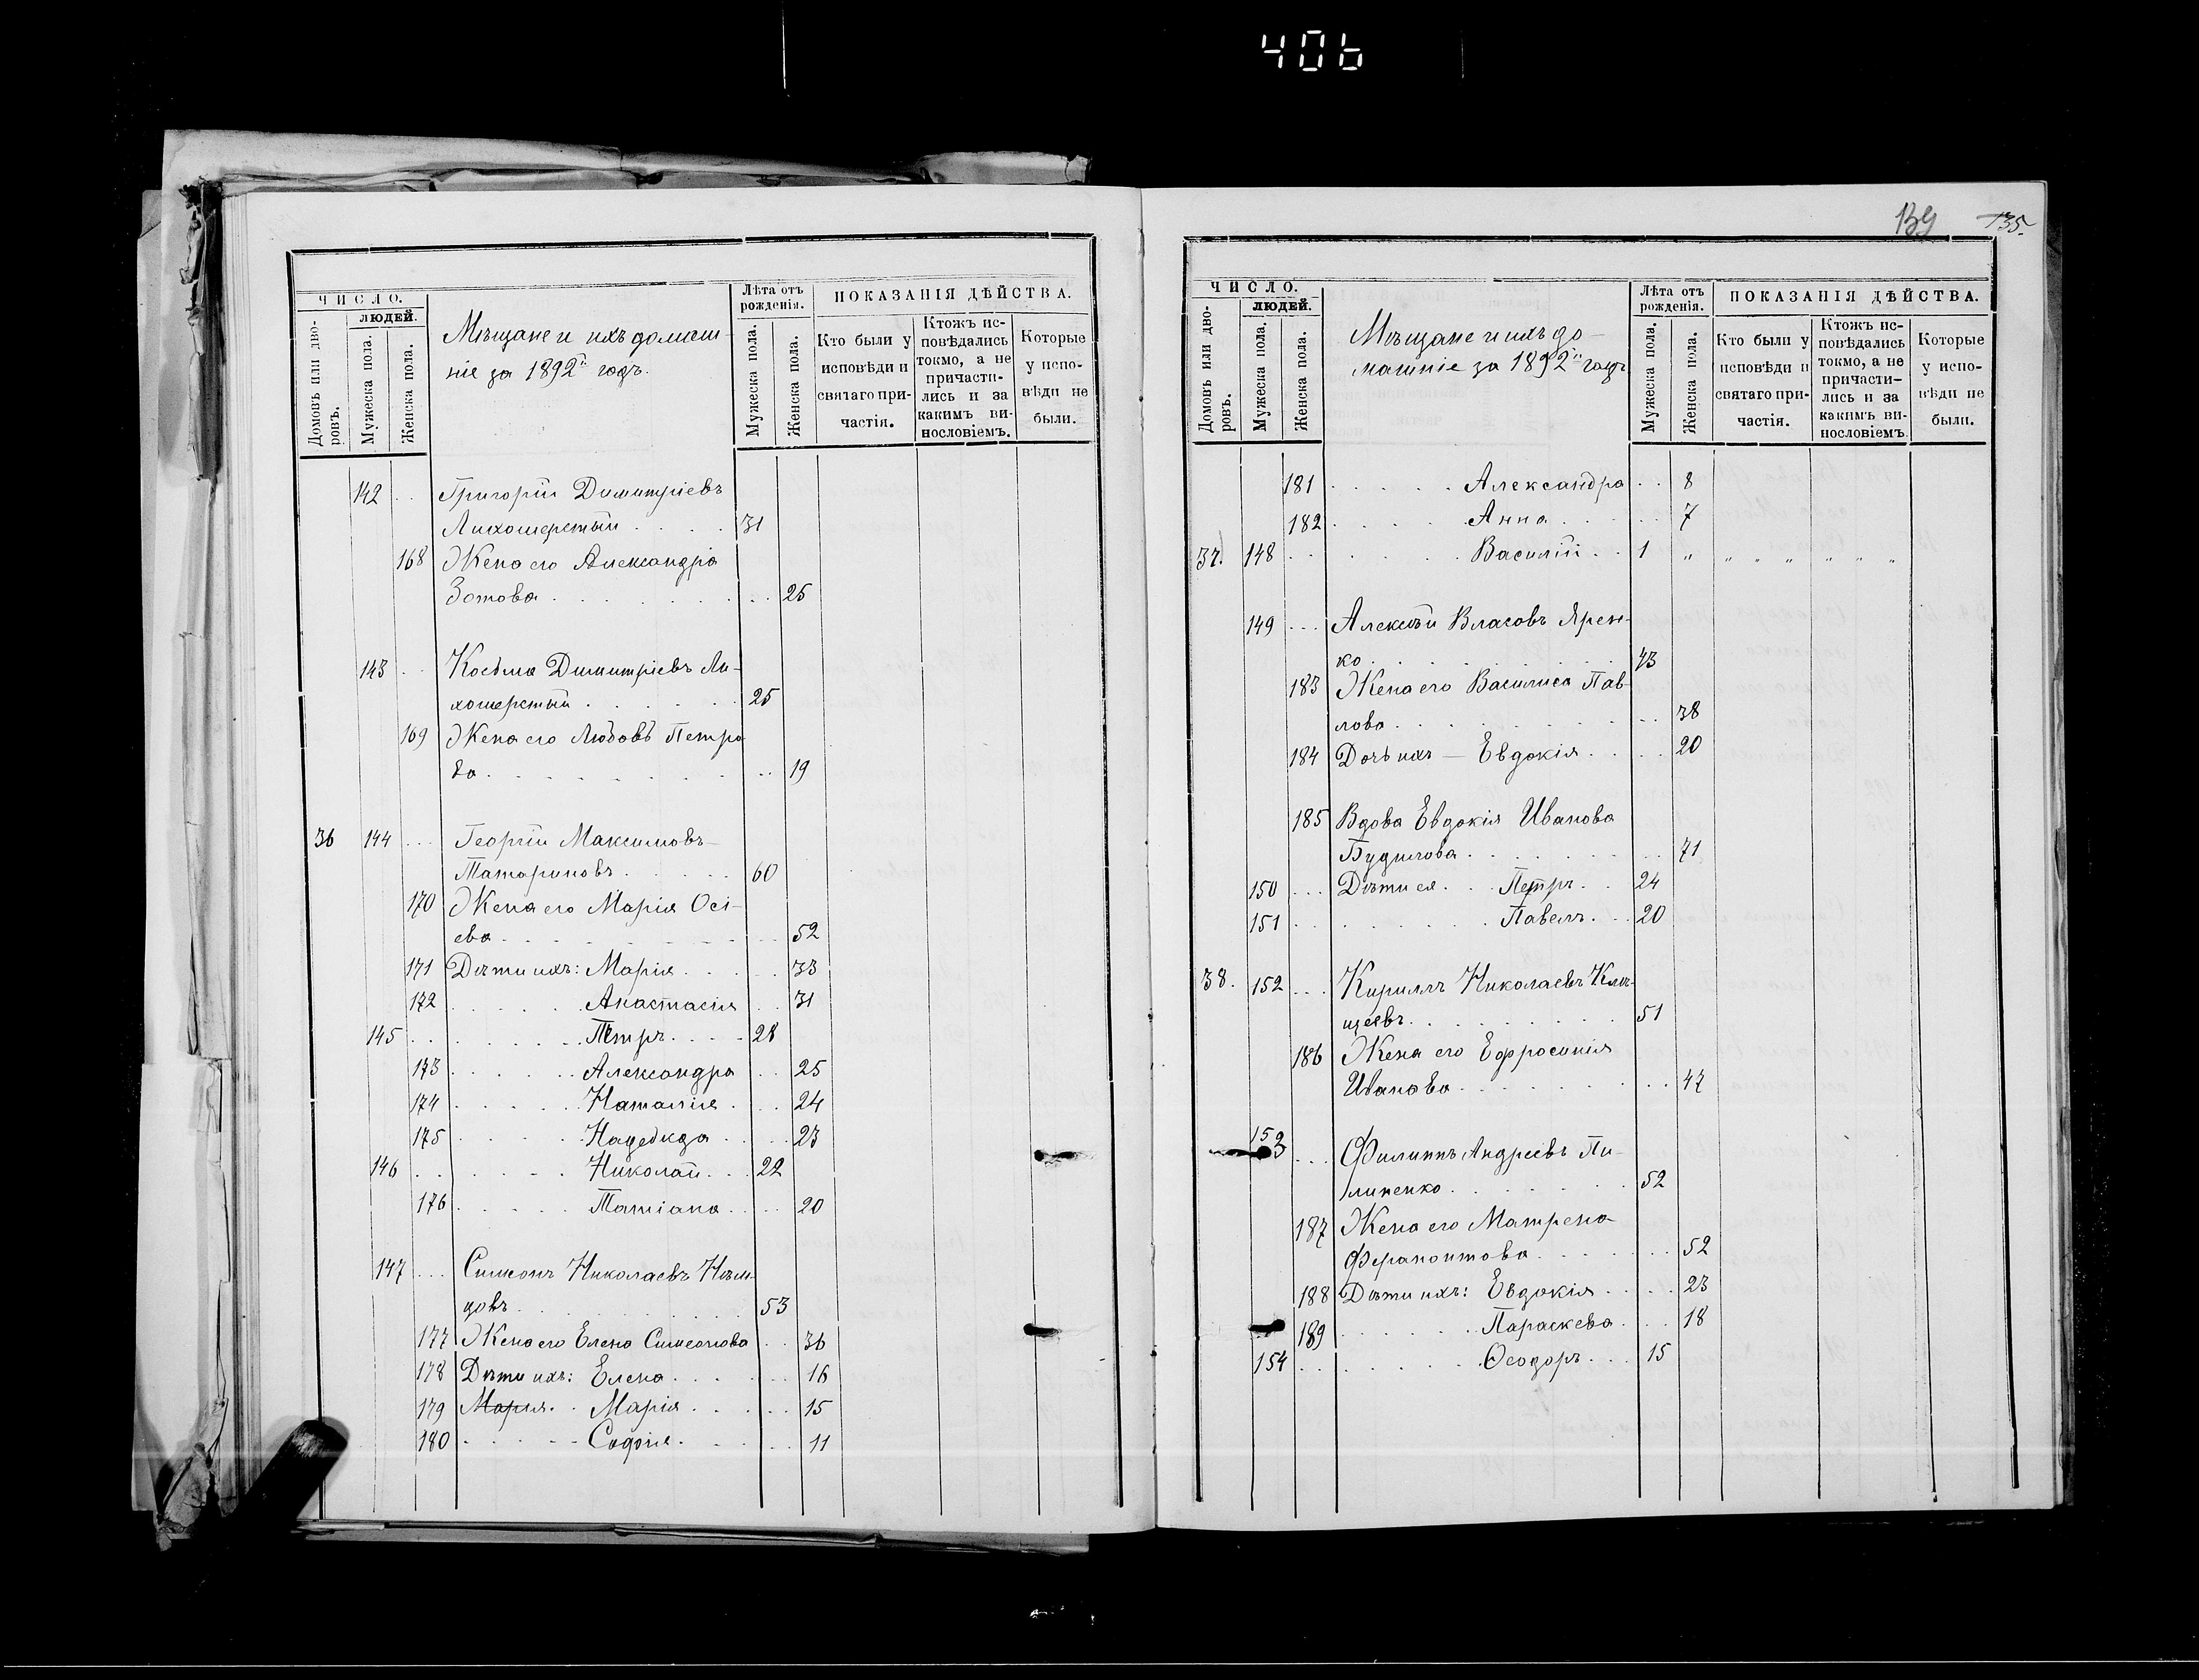 406
ЧИСЛО.
ЛЮДЕЙ.
Домовъ или дворовъ.
Мужеска пола.
Женска пола.
Мѣщане и ихъ домаш-
ніе за 1892й годъ.
Лѣта отъ
рожденія.
Мужеска пола.
Женска пола.
ПОКАЗАНІЯ ДѢЙСТВА.
Кто были у
исповѣди и
святаго при-
частія.
Ктожъ ис-
повѣдались
токмо, а не
причасти-
лись и за
какимъ ви-
нословіемъ.
Которые
у испо-
вѣди не
были.
142 Григорій Димитріевъ
Лихошерстый 31
168 Жена его Александра
Зотова 25
143 Косьма Димитріевъ Ли-
хошерстый 25
169 Жена его Любовь Петро
ва 19
36 144 Георгій Максимовъ
Татариновъ 60
170 Жена его Марія Осі-
ева 52
171 Дѣти ихъ: Марія 33
172 Анастасія 31
145 Петръ 28
173 Александра 25
174 Наталія 24
175 Надежда 23
146 Николай 22
176 Татіана 20
147 Симеонъ Николаевъ
довъ 53
177 Жена его Елена Симеонова 36
178 Дѣти ихъ: Елена 16
179 Мария Марія 15
180 Софія 11
139 135.
ЧИСЛО.
ЛЮДЕЙ.
Домовъ или дворовъ.
Мужеска пола.
Женска пола.
Мѣщане и ихъ до-
машніе за 1892й годъ
Лѣта отъ
рожденія.
Мужеска пола.
Женска пола.
ПОКАЗАНІЯ ДѢЙСТВА.
Кто были у
исповѣди и
святаго при-
частія.
Ктожъ ис-
повѣдались
токмо, а не
причасти-
лись и за
какимъ ви-
нословіемъ.
Которые
у испо-
вѣди не
были.
181 Александра 8
182 Анна 7
37. 148 Василій 1 " " " " " " "
149 Алексѣй Власовъ Ярен-
ко 43
183 Жена его Василиса Пав-
лова 38
184 Дочь ихъ — Евдокія 20
185 Вдова Евдокія Иванова
Будилова 71
150 Дѣти ея Петръ 24
151 Павелъ 20
38. 152 Кириллъ Николаевъ Клю-
щевъ 51
186 Жена его Ефросинія
Иванова 47
153 Филиппъ Андреевъ Пи-
липенко 52
187 Жена его Матрена
Ферапонтова 52
188 Дѣти ихъ: Евдокія 23
189 Параскева 18
154 Ѳеодоръ 15